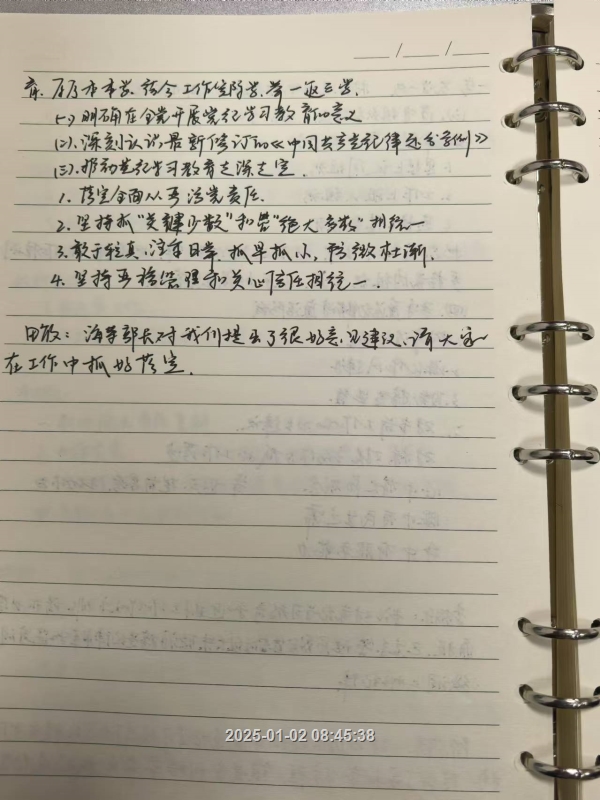 (一)明确在全党开展党纪学习教育的意义
(二).深刻认识最新修订的《中国共产党纪律处分条例》
(三).推动党纪学习教育走深走实.
1. 落实全面从严治党责任.
2. 坚持抓“关键少数”和管“绝大多数”相统一
3. 敢于较真,注重日常,抓早抓小,防微杜渐.
4. 坚持严格管理和关心信任相统一.
田敏:海学部长对我们提出了很好意见建议,请大家
在工作中抓好落实.
2025-01-02 08:45:38